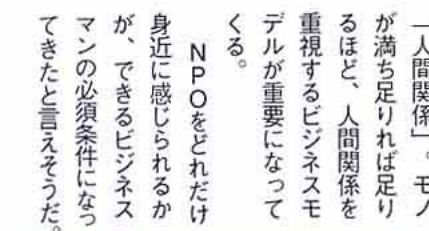 「人間関係」。モノ
が満ち足りれば足り
るほど、人間関係を
重視するビジネスモ
デルが重要になって
くる。
　NPOをどれだけ
身近に感じられるか
が、できるビジネス
マンの必須条件になっ
てきたと言えそうだ。